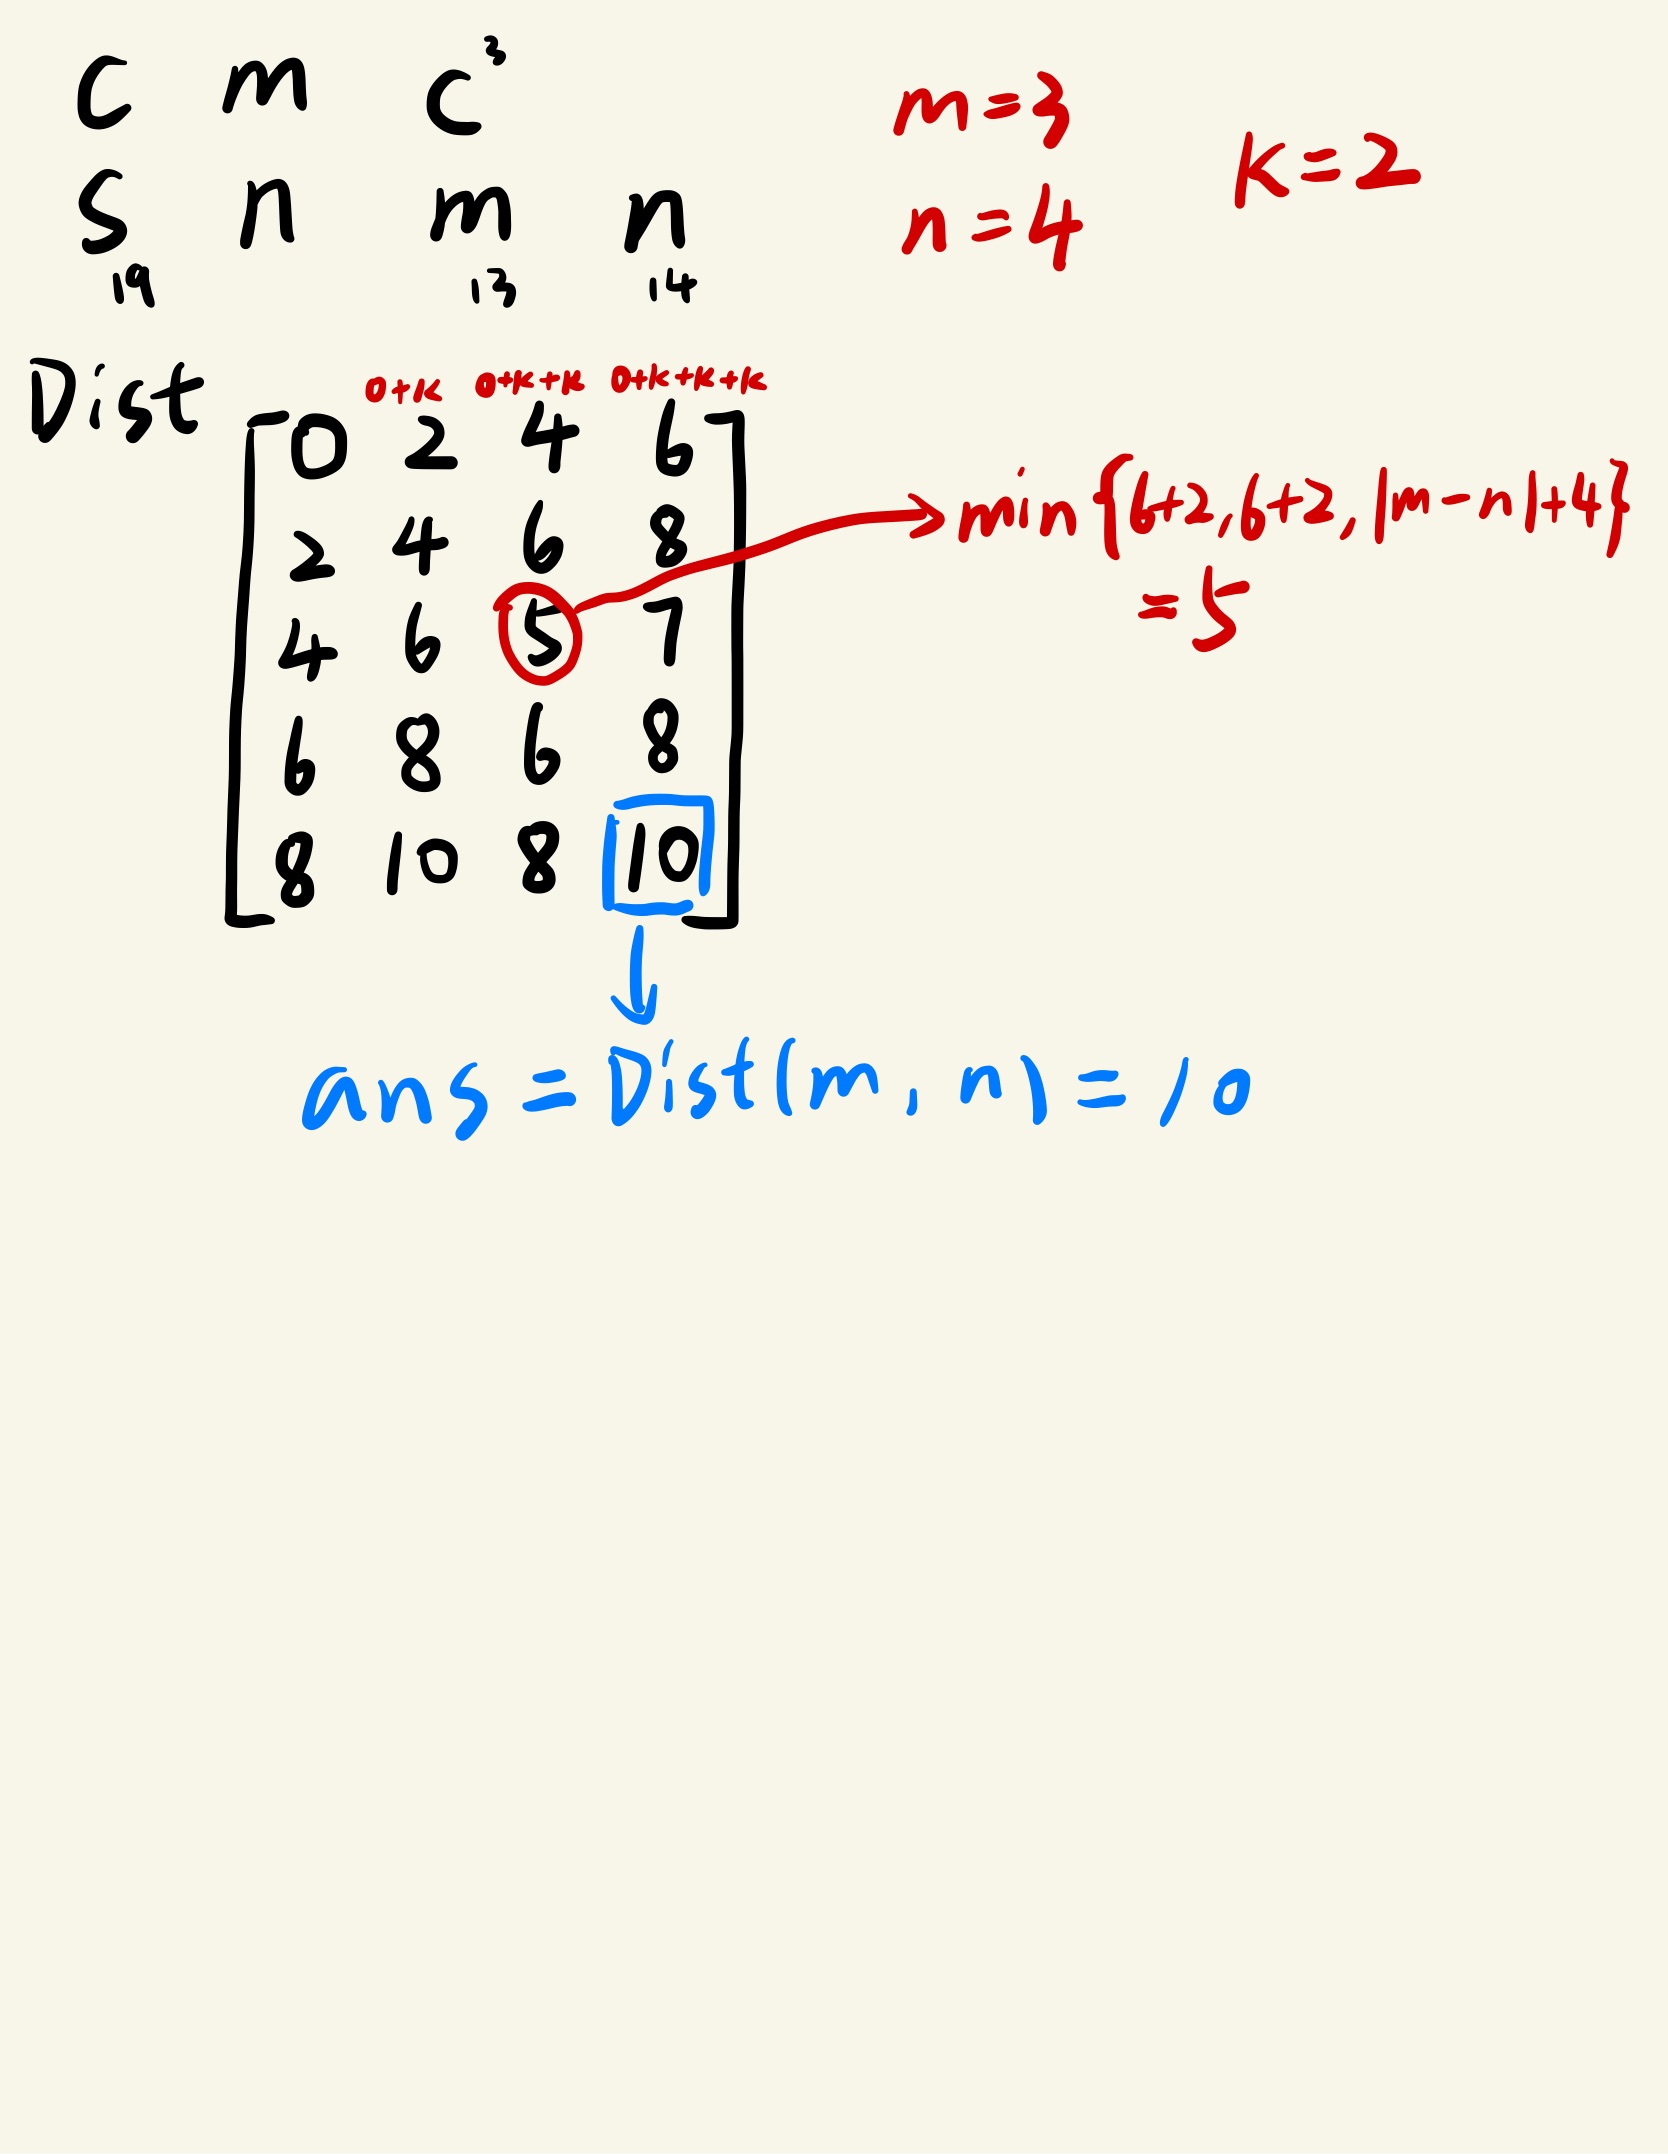 c m c³
s n m n
19 13 14
m=3
n=4
K=2
Dist
0+K 0+K+K 0+K+K+K
0 2 4 6
2 4 6 8
4 6 5 7
6 8 6 8
8 10 8 10
min{6+2,6+2,|m-n|+4}
=5
ans=Dist(m,n)=10